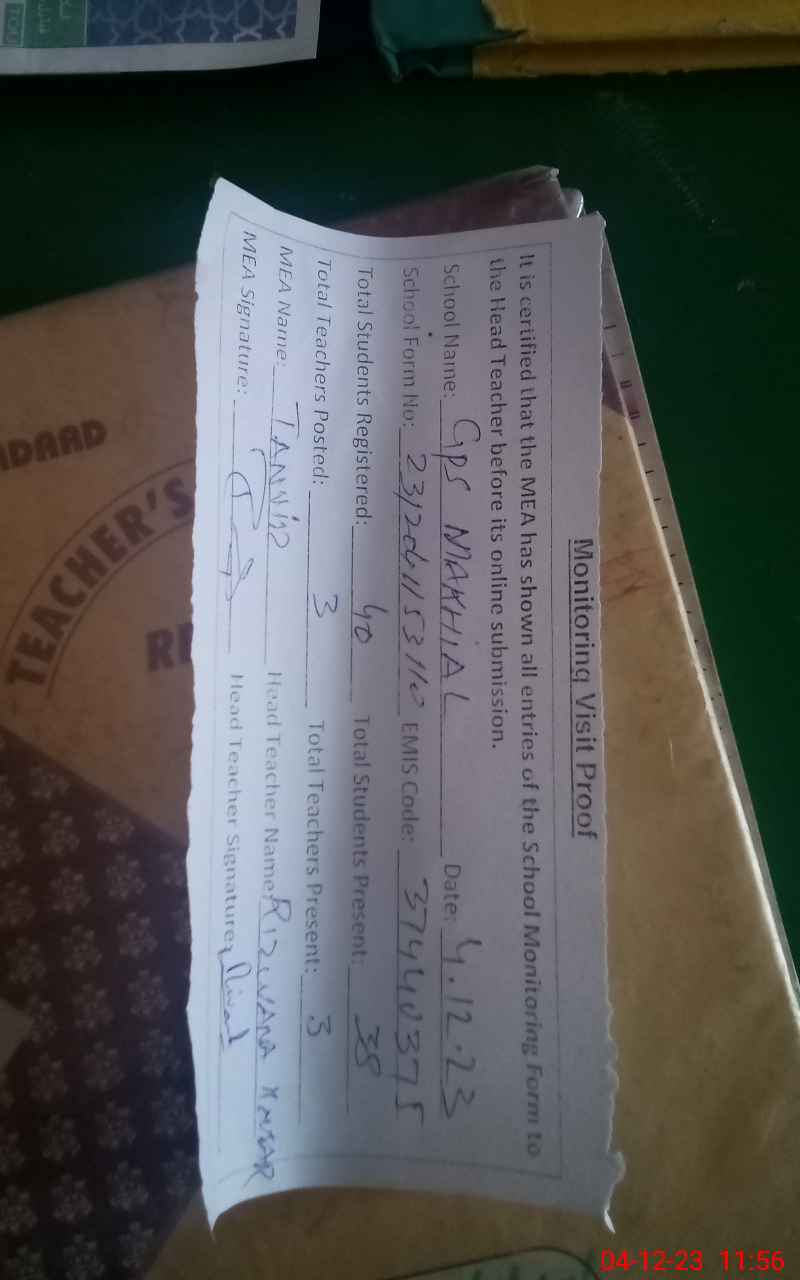 Monitoring Visit Proof
It is certified that the MEA has shown all entries of the School Monitoring Form to
the Head Teacher before its online submission.
School Name: GPS NIAKHIAL Date: 4.12.23
School Form No: EMIS Code: 37440375
Total Students Registered: 40 Total Students Present: 38
Total Teachers Posted: 3 Total Teachers Present: 3
MEA Name: Head Teacher Name:
MEA Signature: Head Teacher Signature:
DAAD
TEACHER'S
04-12-23 11:56